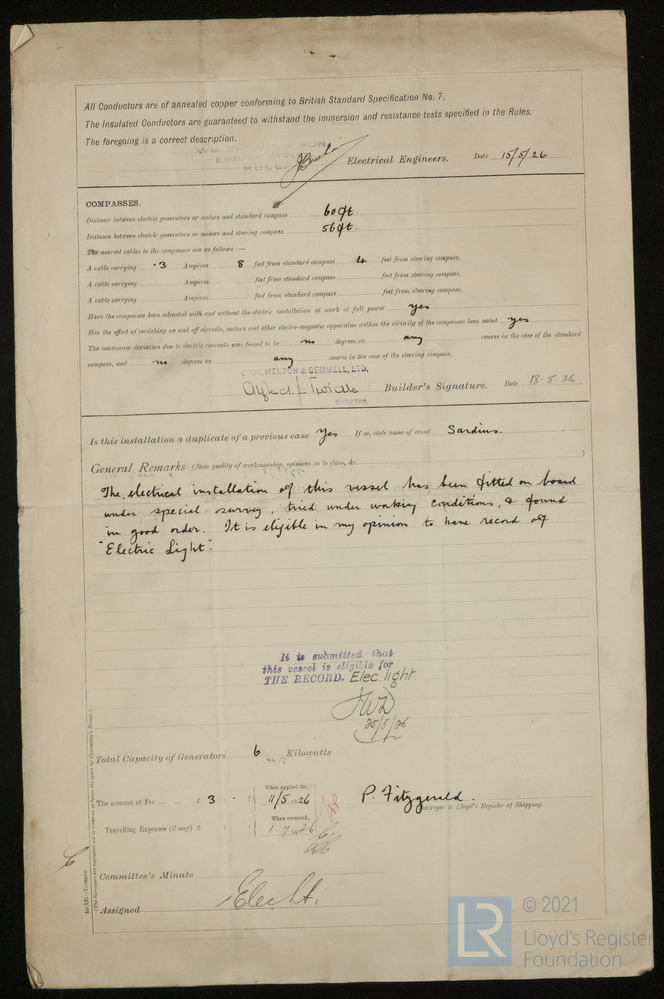 All Conductors are of annealed copper conforming to British Standard Specification No. 7.
The Insulated Conductors are guaranteed to withstand the immersion and resistance tests specified in the Rules.
The foregoing is a correct description.
SON
HULL
Electrical Engineers. Date 15/5/26
COMPASSES.
Distance between electric generators or motors and standard compass 60 ft
Distance between electric generators or motors and steering compass 56 ft.
The nearest cables to the compasses are as follows:—
A cable carrying .3 Amperes 8 feet from standard compass 4 feet from steering compass.
A cable carrying Amperes feet from standard compass feet from steering compass.
A cable carrying Amperes feet from standard compass feet from steering compass.
Have the compasses been adjusted with and without the electric installation at work at full power yes
Has the effect of switching on and off circuits, motors and other electro-magnetic apparatus within the vicinity of the compasses been noted yes
The maximum deviation due to electric currents was found to be no degrees on any course in the case of the standard
compass, and no degrees on any course in the case of the steering compass.
COOK, WELTON & GEMMELL, LTD.
Builder's Signature. Date 18.5.26
DIRECTOR
Is this installation a duplicate of a previous case Yes If so, state name of vessel Sardius.
General Remarks (State quality of workmanship, opinions as to class, &c.
The electrical installation of this vessel has been fitted on board
under special survey, tried under working conditions, & found
in good order. It is eligible in my opinion to have record of
"Electric Light".
It is submitted that
this vessel is eligible for
THE RECORD. Elec. light
25/5/26
Total Capacity of Generators 6 Kilowatts
The amount of Fee ... ... £ 3 : - : When applied for, 11/5/1926
P. Fitzgerald.
Surveyor to Lloyd's Register of Shipping.
Travelling Expenses (if any) £ : : When received, 1.7.1926
Committee's Minute
Assigned Elec. Lt.
LR © 2021
Lloyd's Register
Foundation